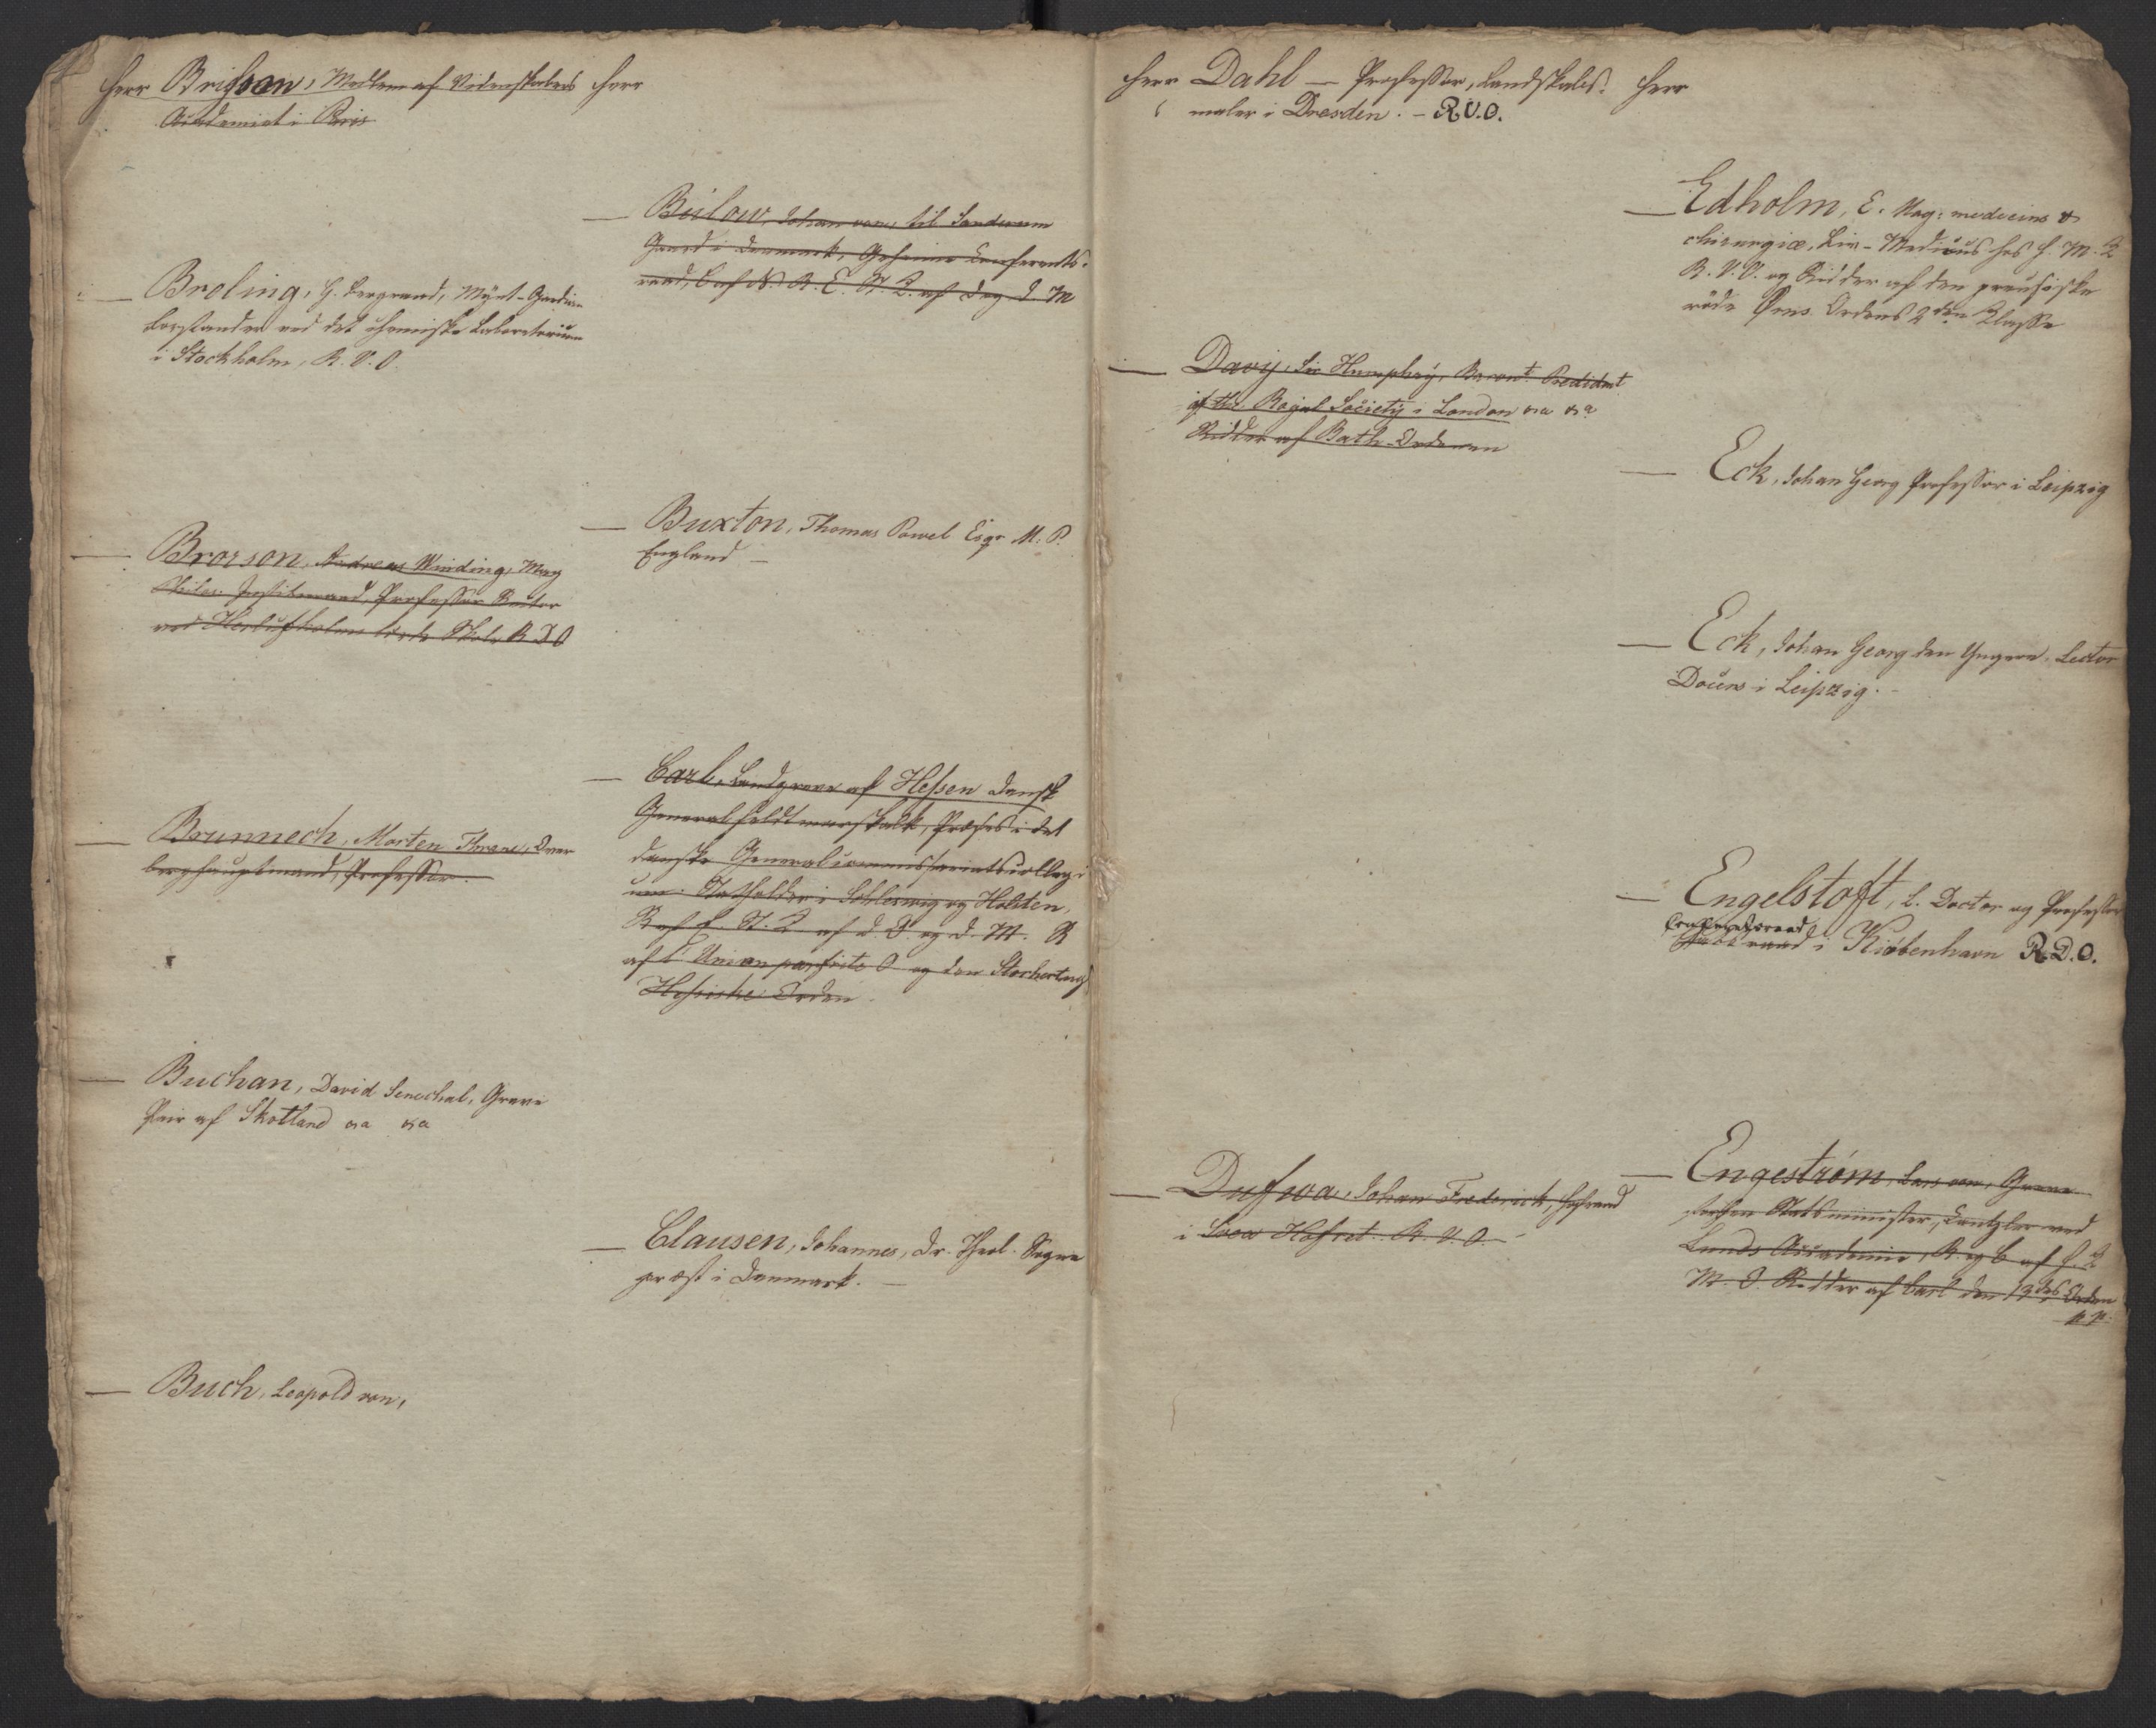 Herr Brisson, Medlem af Videnskabers
Academiet i Paris
— Broling, G. Bergraad, Mynt-Guardein
Forstander ved det chemiske Laboratorium
i Stockholm, R. V. O.
— Brorson, Andreas Winding, Mag
Philos. Justitsraad, Professor Rector
ved Herlufsholms lærde Skole R D O
— Brunnech, Morten Thrane, Over
berghauptmand, Professor.
— Buchan, David Senechal, Greve
Pair af Skotland &a &a
— Buch, Leopold von,
Herr
— Bülow, Johan von, til Sanderum
Gaard i Danmark, Geheime Conferents-
raad, C af N. R. E. St. K. af Dag. D. M
— Buxton, Thomas Powel Esqr M. P.
England —
— Carl, Landgreve af Hessen Dansk
General Feldtmarskalk, Præses i det
danske Generalcommissariatscollegi
um. Statholder i Schleswig og Holsten,
R af E. St. K af d. D. og D. M. R
af l'Union parfaite O og den Storhertugl
Hessiske Orden.
— Clausen, Johannes, Dr. Theol. Sogne
præst i Danmark. —
Herr Dahl — Professor, Landskabs-
maler i Dresden. — R.V.O.
— Davy, Sir Humphry, Baront President
of the Royal Society i London &a &a
Ridder af Bath-Ordenen
— Dufwa, Johan Frederick, Hofraad
i Svea Hofret. R. V. O. —
Herr
— Edholm, E. Mag: medicins &
chirurgiæ, Liv-Medicus hos H. M. K
R. V. O. og Ridder af den preussiske
röde Ørns Ordens 2den Klasse
— Eck, Johan Georg Professor i Leipzig
— Eck, Johan Georg den Yngere, Lector
Docens i Leipzig. —
— Engelstoft, L. Doctor og Professor
Conferentsraad
Etatsraad i Kiøbenhavn R.D.O.
— Engeström, Lars von, Greve
forhen Statsminister, Cantzler ved
Lunds Academie, R. og C af H. K
M. O. Ridder af Carl den 13des Orden
p. p.